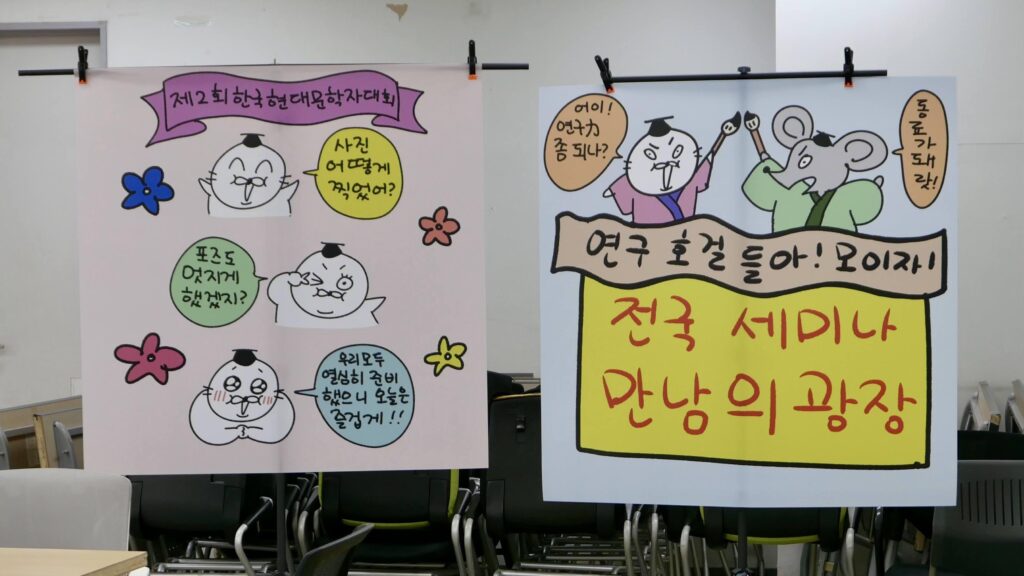 제2회 한국현대문학자대회
사진
어떻게
찍었어?
포즈도
멋지게
했겠지?
우리모두
열심히 준비
했으니 오늘은
즐겁게!!
어이!
연구力
좀 되나?
동료가
돼
랏!
연구 호걸들아! 모이자!
전국 세미나
만남의 광장